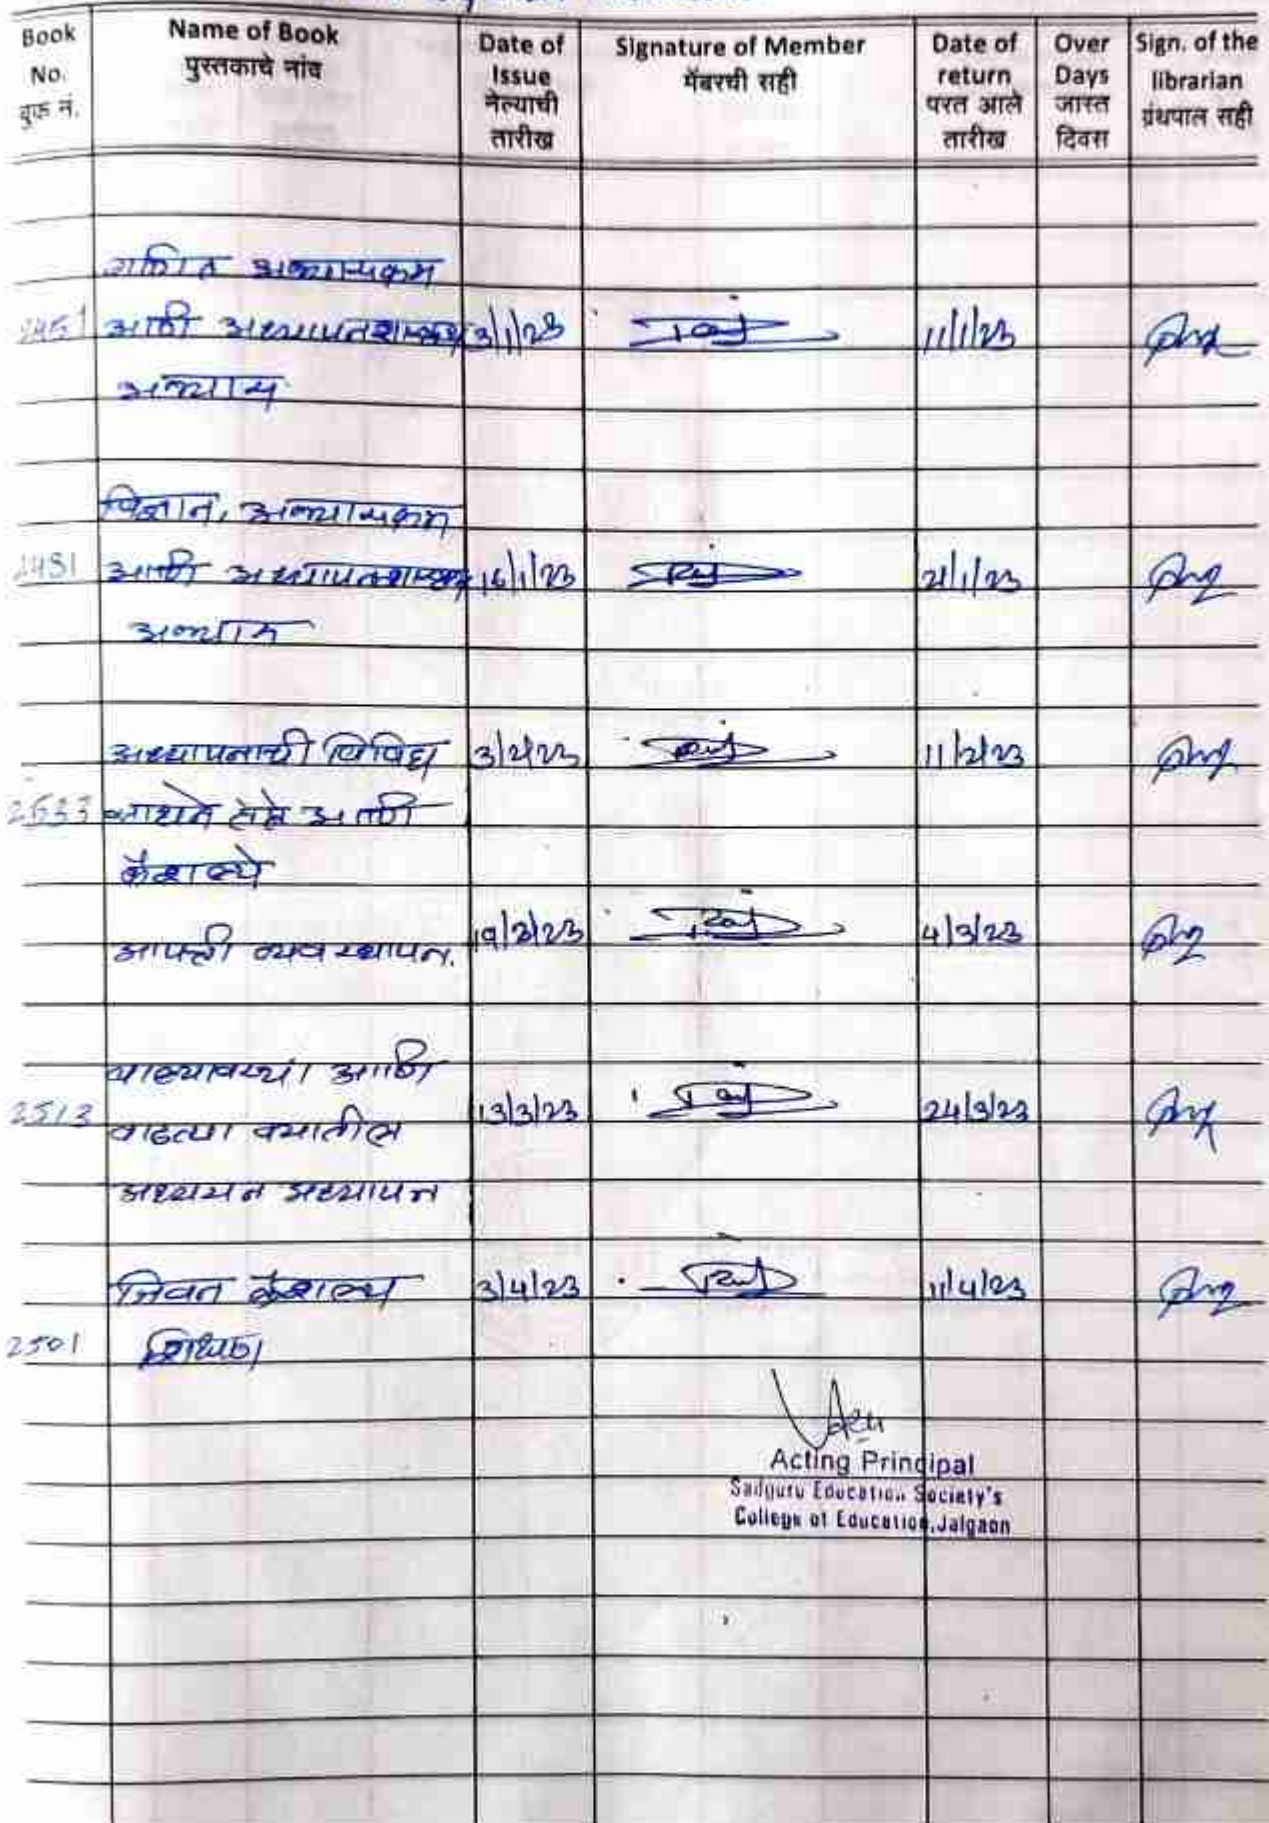 Book No. बुक नं. Name of Book पुस्तकाचे नांव Date of Issue नेल्याची तारीख Signature of Member मेंबरची सही Date of return परत आले तारीख Over Days जास्त दिवस Sign. of the librarian ग्रंथपाल सही
गणित अभ्यासक्रम
2451 आणी अध्यापनशास्त्रीय 3/1/23 11/1/23
अभ्यास
विज्ञान, अभ्यासक्रम
2481 आणी अध्यापनशास्त्रीय 16/1/23 21/1/23
अभ्यास
अध्यापनाची विविध 3/2/23 11/2/23
2533 आणी
कौशल्ये
आपत्ती व्यवस्थापन. 19/2/23 4/3/23
बाल्यावस्था आणि
2513 वाढत्या वयातील 13/3/23 24/3/23
अध्ययन अध्यापन
जिवन कौशल्य 3/4/23 11/4/23
2501 शिक्षण
Acting Principal
Sadguru Education Society's
College of Education, Jalgaon